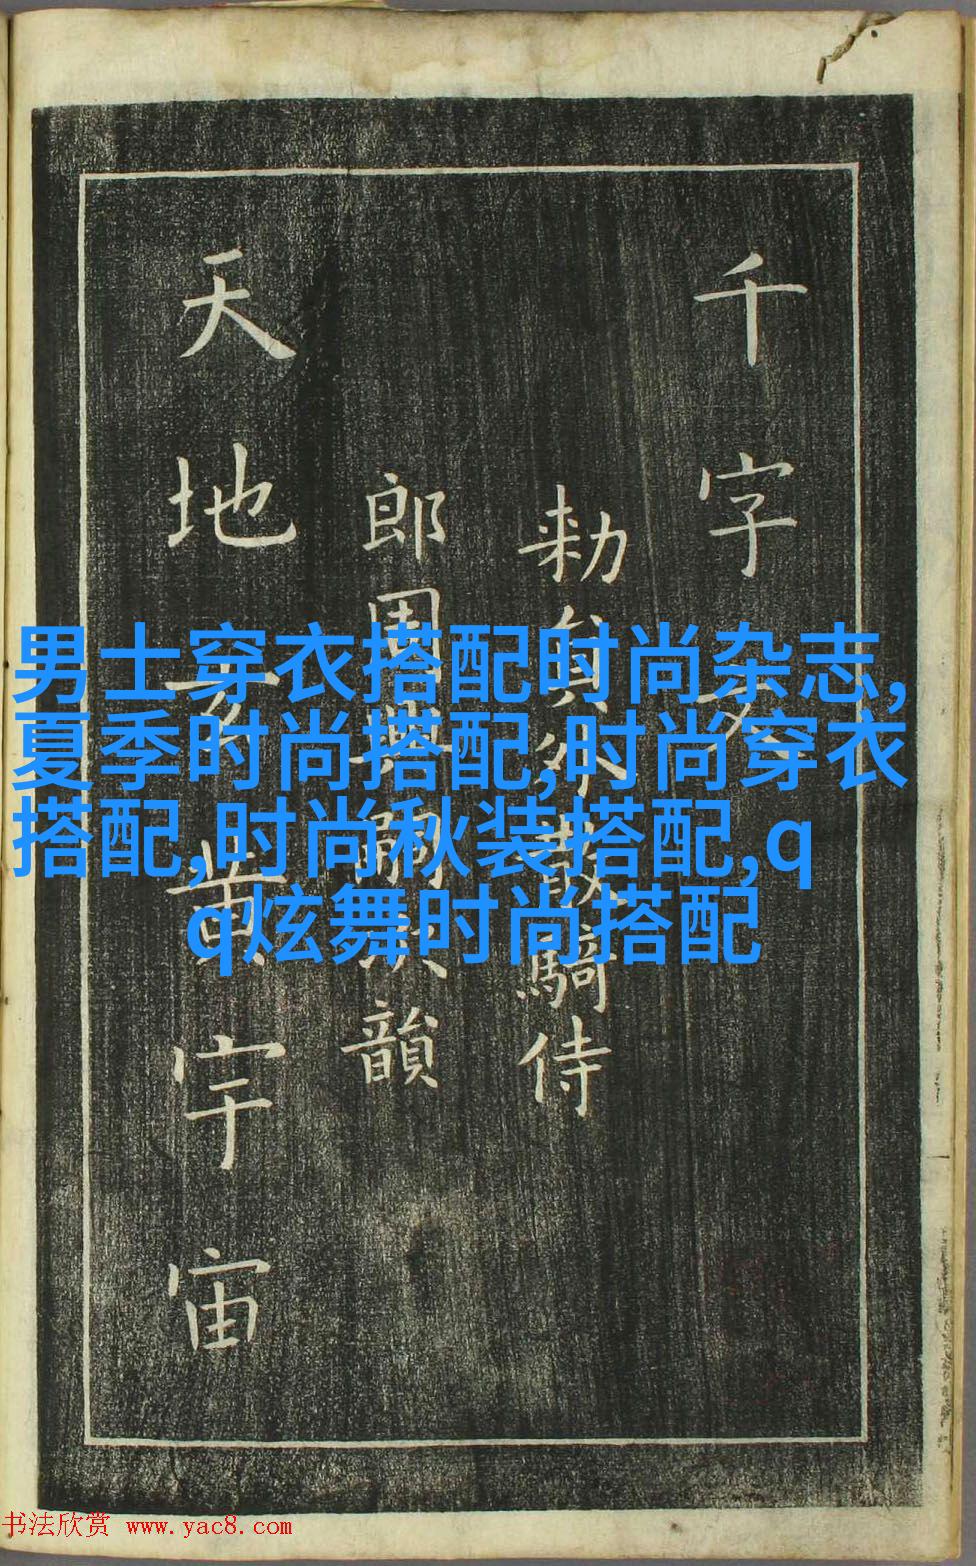 千字文
勑員外散騎侍
郎周興嗣次韻
天地玄黄宇宙
男士穿衣搭配时尚杂志,
夏季时尚搭配,时尚穿衣
搭配,时尚秋装搭配,q
q炫舞时尚搭配
书法欣赏 www.yac8.com